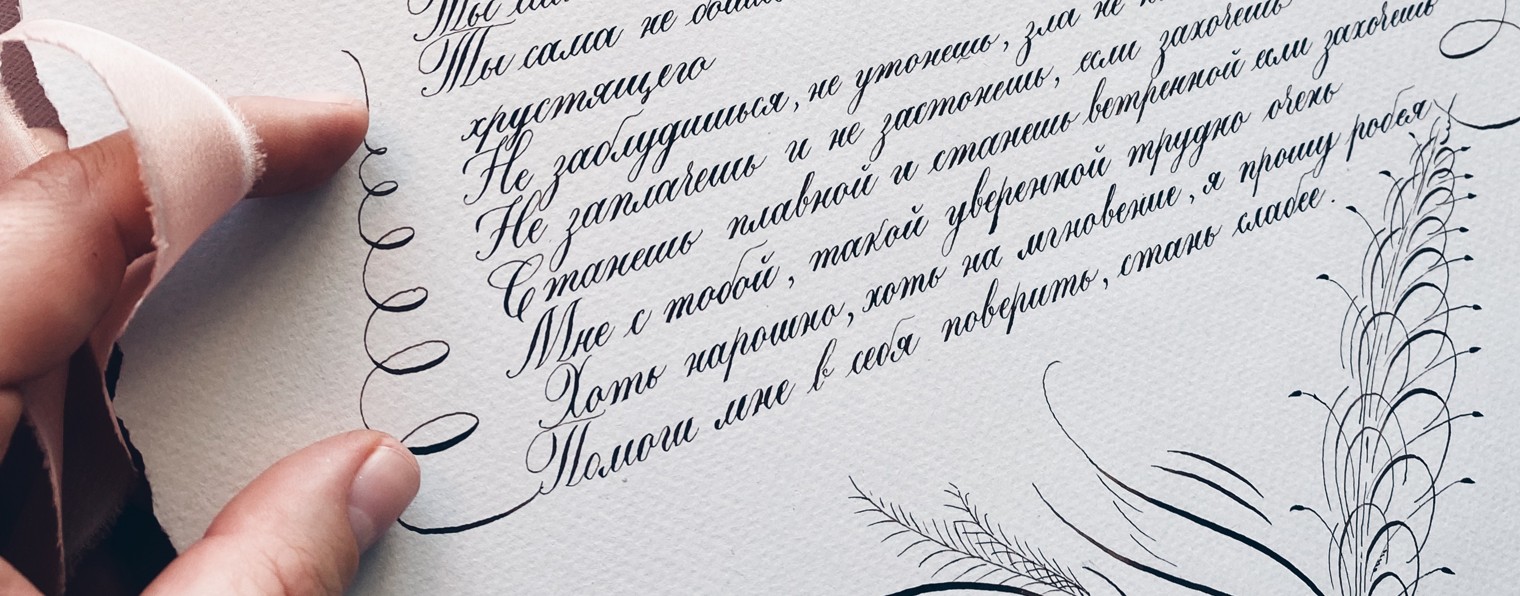 Ты
Ты сама не
хрустящего
Не заблудишься, не утонешь, зла не
Не заплачешь и не застонешь, если захочешь
Станешь плавной и станешь ветренной если захочешь
Мне с тобой, такой уверенной трудно очень
Хоть нарошно, хоть на мгновение, я прошу робея
Помоги мне в себя поверить, стань слабее.